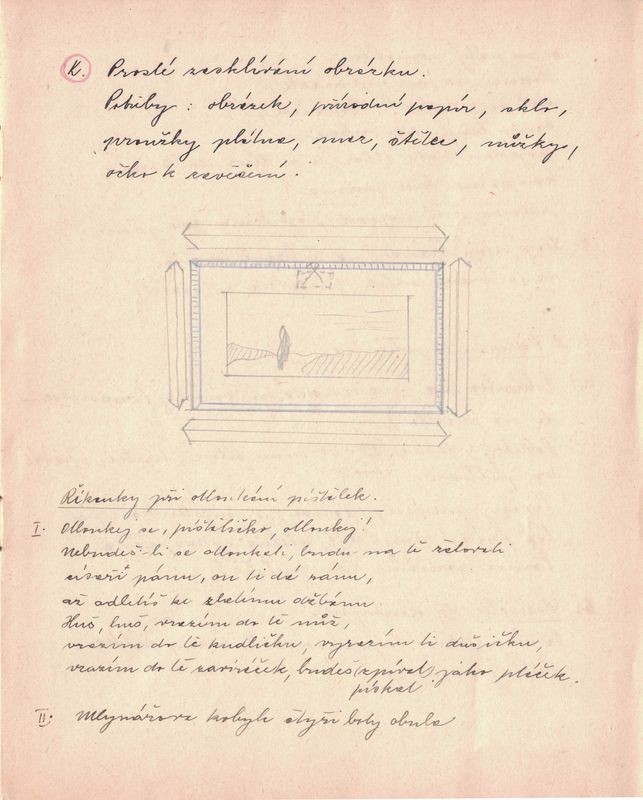 K. Prosté zasklívání obrázku.
Potřeby: obrázek, přírodní papír, sklo,
proužky plátna, maz, štětce, nůžky,
očko k zavěšení.
Říkanky při otloukání píšťalek.
I. Otloukej se, píštaličko, otloukej!
Nebudeš-li se otloukati, budu na tě žalovati
císaři pánu, on ti dá ránu,
až odletíš ke zlatému džbánu.
Huš, huš, vrazím do tě nůž,
vrazím do tě kudličku, vyrazím ti dušičku,
vrazím do tě zavíráček, budeš (zpívat) jako ptáček.
pískat
II. Mlynářova kobyla čtyři boty obula